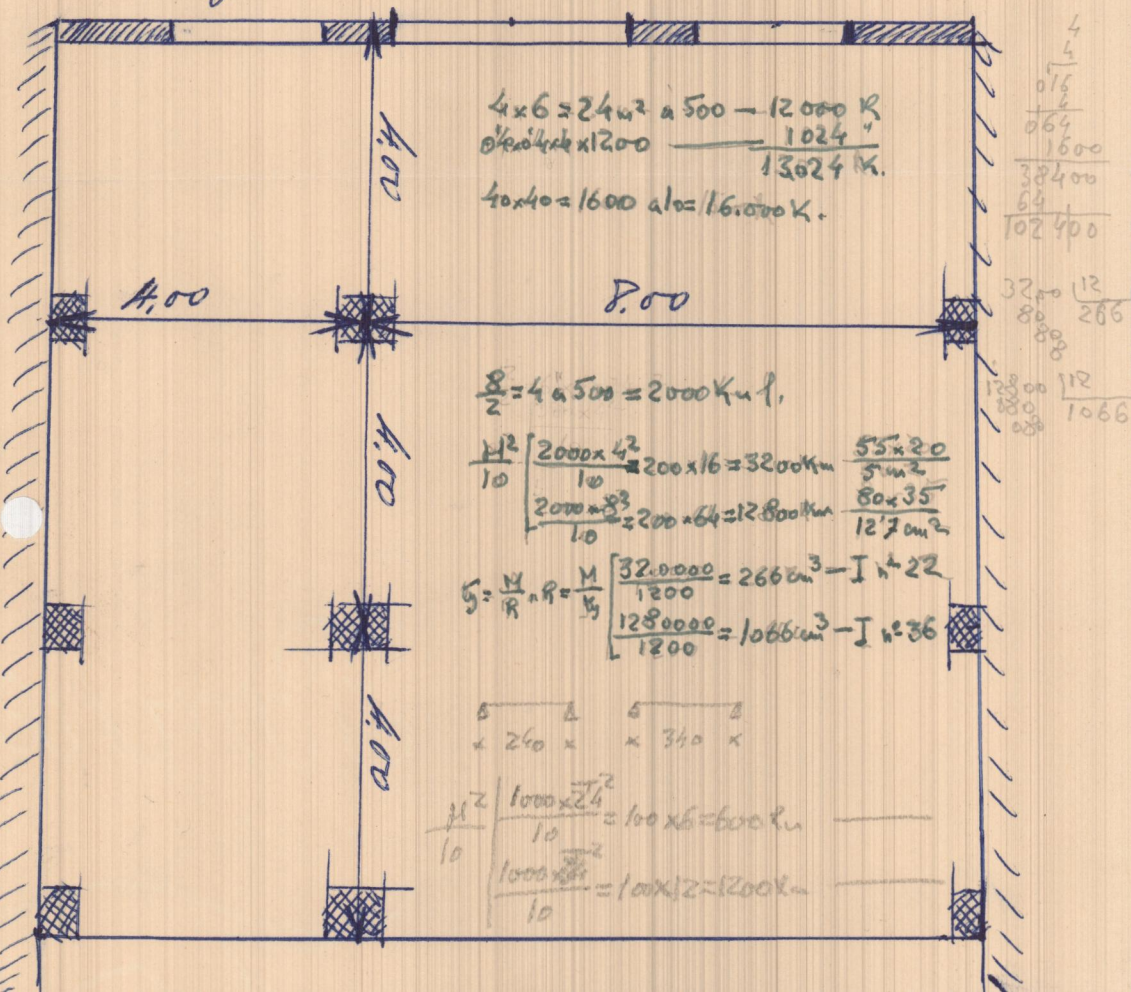 4,00
4×6=24m² a 500 — 12000 K
0'4×0'4×4×1200 — 1024 "
13.024 K.
40×40=1600 a 10=16.000K.
4,00
8.00
8/2=4 a 500=2000K
4,00
2000×4²/10=200×16=3200Km 55×20/5cm²
2000×8²/10=200×64=12800Km 80×35/12'7cm²
320.000/1200=266cm³-I nº 22
1280000/1200=1066cm³-I nº 36
4,00
× 240 × × 340 ×
/10 1000×2'4²/10=100×6=600K
/10=100×12=1200K
4
4
016
4
064
1600
38400
64
102400
32,00 12
80 266
12800 12
1066